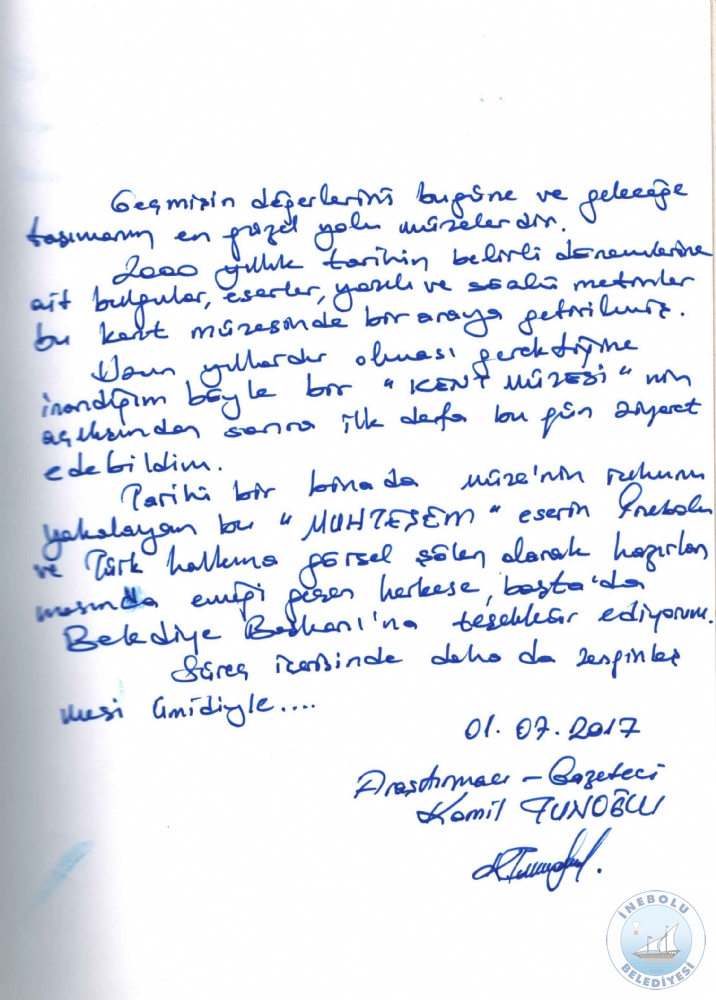 Geçmişin değerlerini bugüne ve geleceğe
taşımanın en güzel yolu müzelerdir.
2000 yıllık tarihin belirli dönemlerine
ait bulgular, eserler, yazılı ve sözlü metinler
bu kent müzesinde bir araya getirilmiş.
Uzun yıllardır olması gerektiğine
inandığım böyle bir "KENT MÜZESİ" nin
açılışından sonra ilk defa bu gün ziyaret
edebildim.
Tarihi bir binada müze'nin ruhunu
yakalayan bu "MUHTEŞEM" eserin İnebolu
ve Türk halkına görsel şölen olarak hazırlan
masında emeği geçen herkese, başta'da
Belediye Başkanı'na teşekkür ediyorum.
Süreç içerisinde daha da zenginleş
mesi ümidiyle....
01.07.2017
Araştırmacı - Gazeteci
Kamil TUNOĞLU
İNEBOLU
BELEDİYESİ